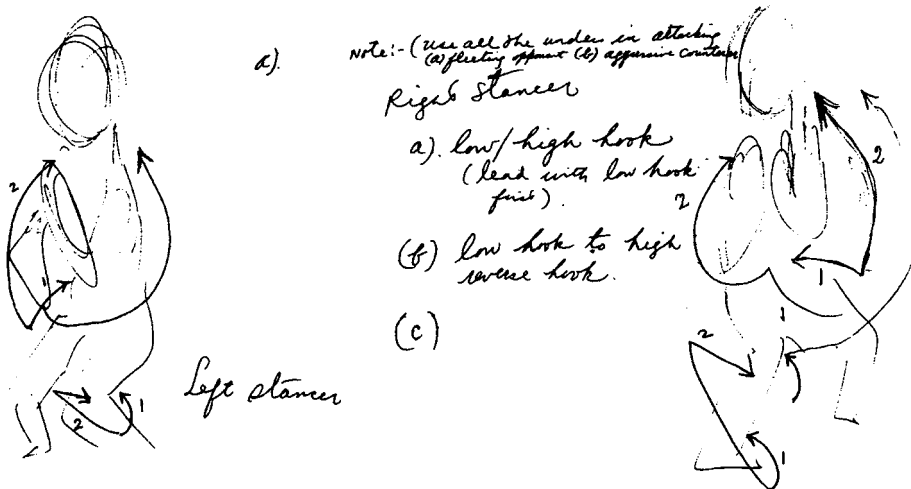 a).
Note:- (use all the under in attacking
(a) fleeting opponent (b) aggressive counterer
Right Stancer
a). low/high hook
(lead with low hook
first).
(b) low hook to high
reverse hook.
(c)
Left stancer
2
1
2
1
2
2
1
2
1
1